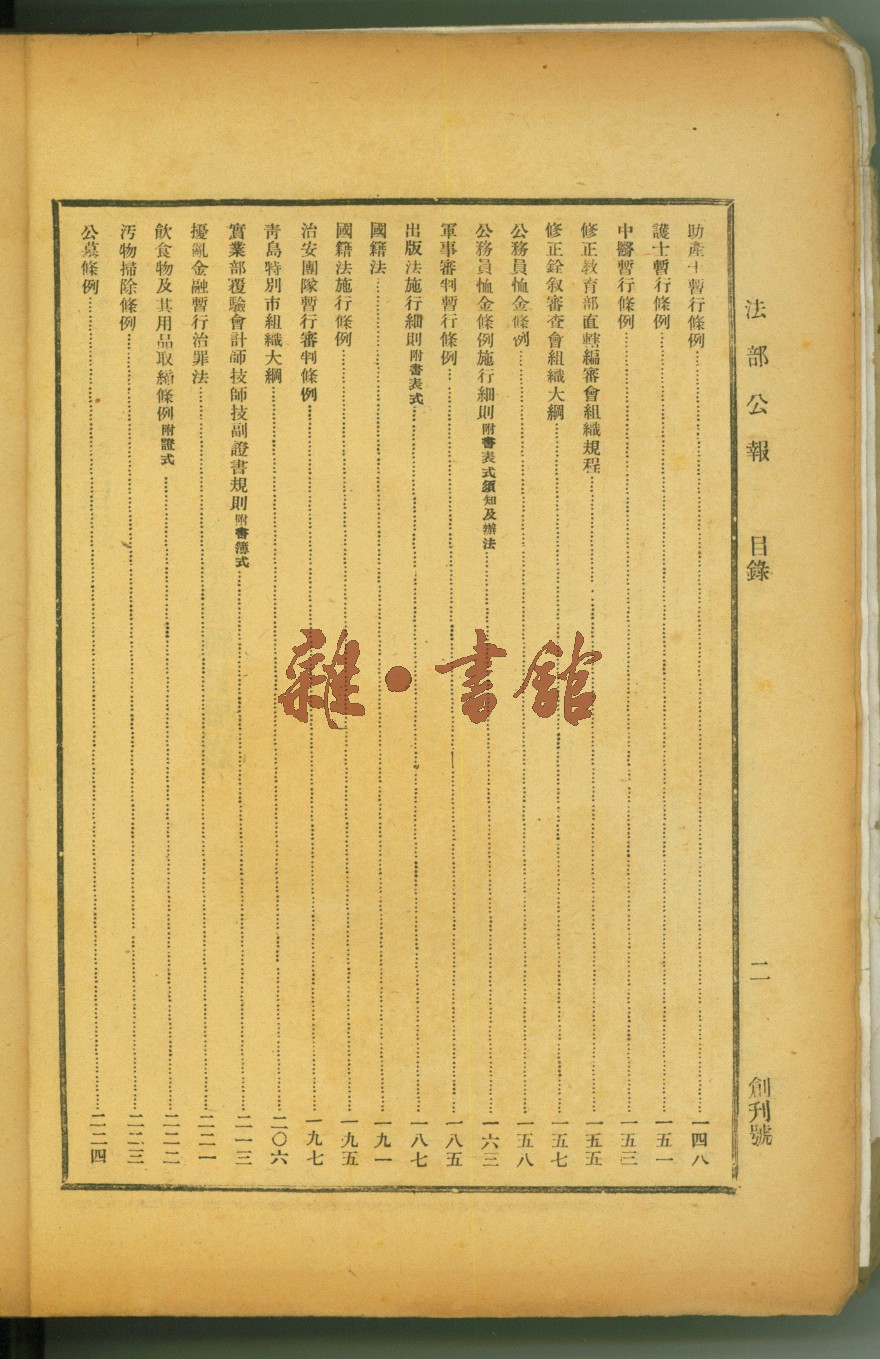 法部公報 目錄 二 創刊號
助產士暫行條例 一四八
護士暫行條例 一五一
中醫暫行條例 一五三
修正教育部直轄編審會組織規程 一五五
修正銓敘審查會組織大綱 一五七
公務員恤金條例 一五八
公務員恤金條例施行細則附書表式須知及辦法 一六三
軍事審判暫行條例 一八五
出版法施行細則附書表式 一八七
國籍法 一九一
國籍法施行條例 一九五
治安團隊暫行審判條例 一九七
青島特別市組織大綱 二〇六
實業部覆驗會計師技師技副證書規則附書簿式 二一三
擾亂金融暫行治罪法 二二一
飲食物及其用品取締條例附證式 二二二
汚物掃除條例 二二三
公墓條例 二二四
雜·書館